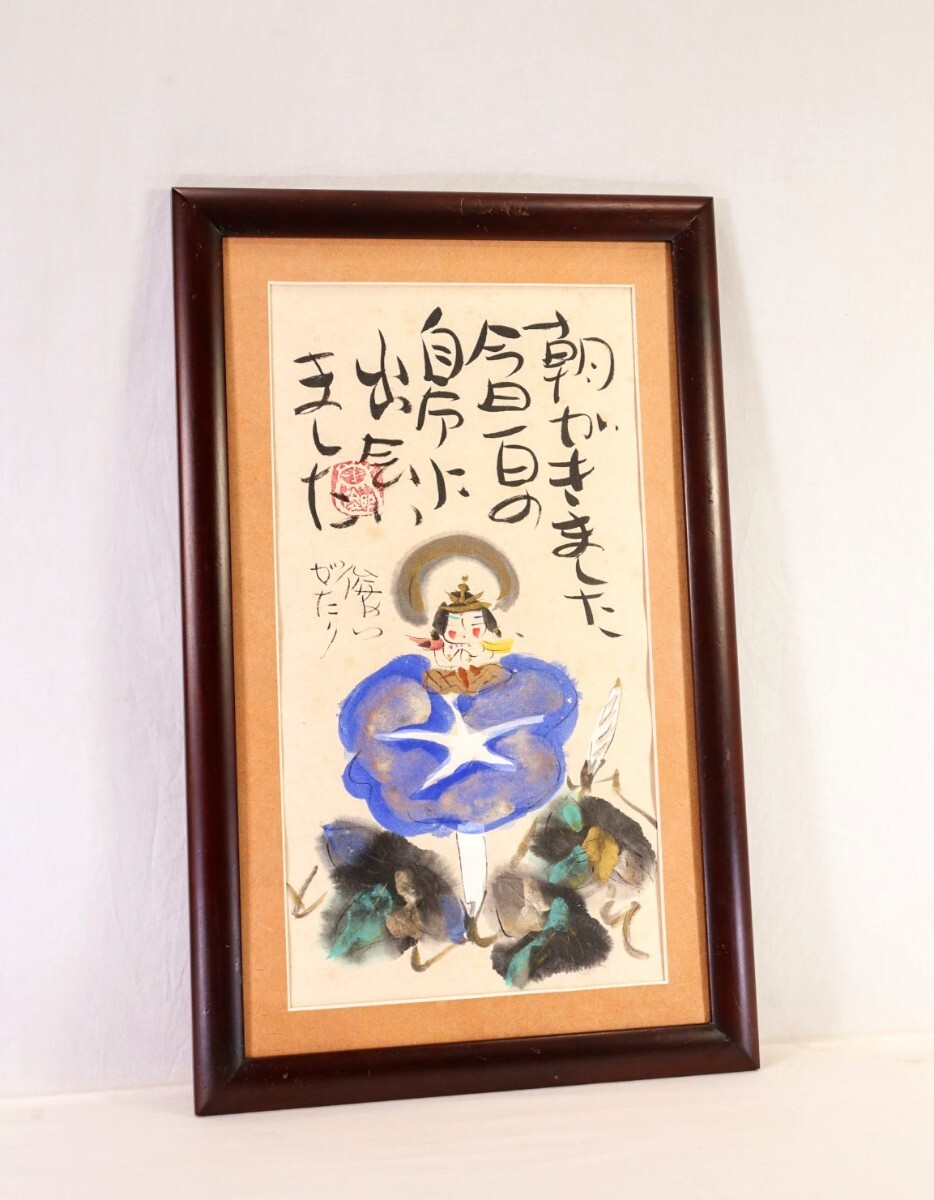 朝がきました
今日一日の
自分に
出合い
ました
がたり